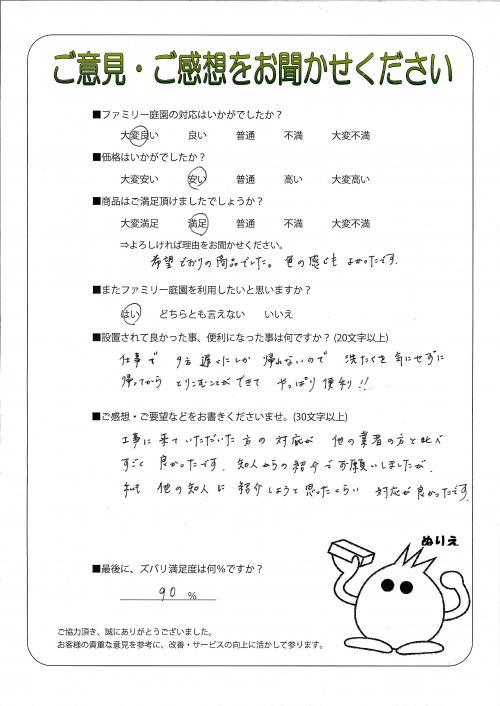 ご意見・ご感想をお聞かせください
■ファミリー庭園の対応はいかがでしたか？
大変良い 良い 普通 不満 大変不満
■価格はいかがでしたか？
大変安い 安い 普通 高い 大変高い
■商品はご満足頂けましたでしょうか？
大変満足 満足 普通 不満 大変不満
⇒よろしければ理由をお聞かせください。
希望どおりの商品でした。色の感じも よかったです.
■またファミリー庭園を利用したいと思いますか？
はい どちらとも言えない いいえ
■設置されて良かった事、便利になった事は何ですか？(20文字以上)
仕事で 夕方 遅くにしか 帰れないので 洗たくを気にせずに
帰ってから とりこむことができて やっぱり便利!!
■ご感想・ご要望などをお書きくださいませ。(30文字以上)
工事に来ていただいた方の対応が 他の業者の方と比べ
すごく 良かったです. 知人からの紹介でお願いしましたが.
私も 他の知人に 紹介しようと思ったくらい 対応が良かったです.
ぬりえ
■最後に、ズバリ満足度は何％ですか？
90 ％
ご協力頂き、誠にありがとうございました。
お客様の貴重な意見を参考に、改善・サービスの向上に活かして参ります。